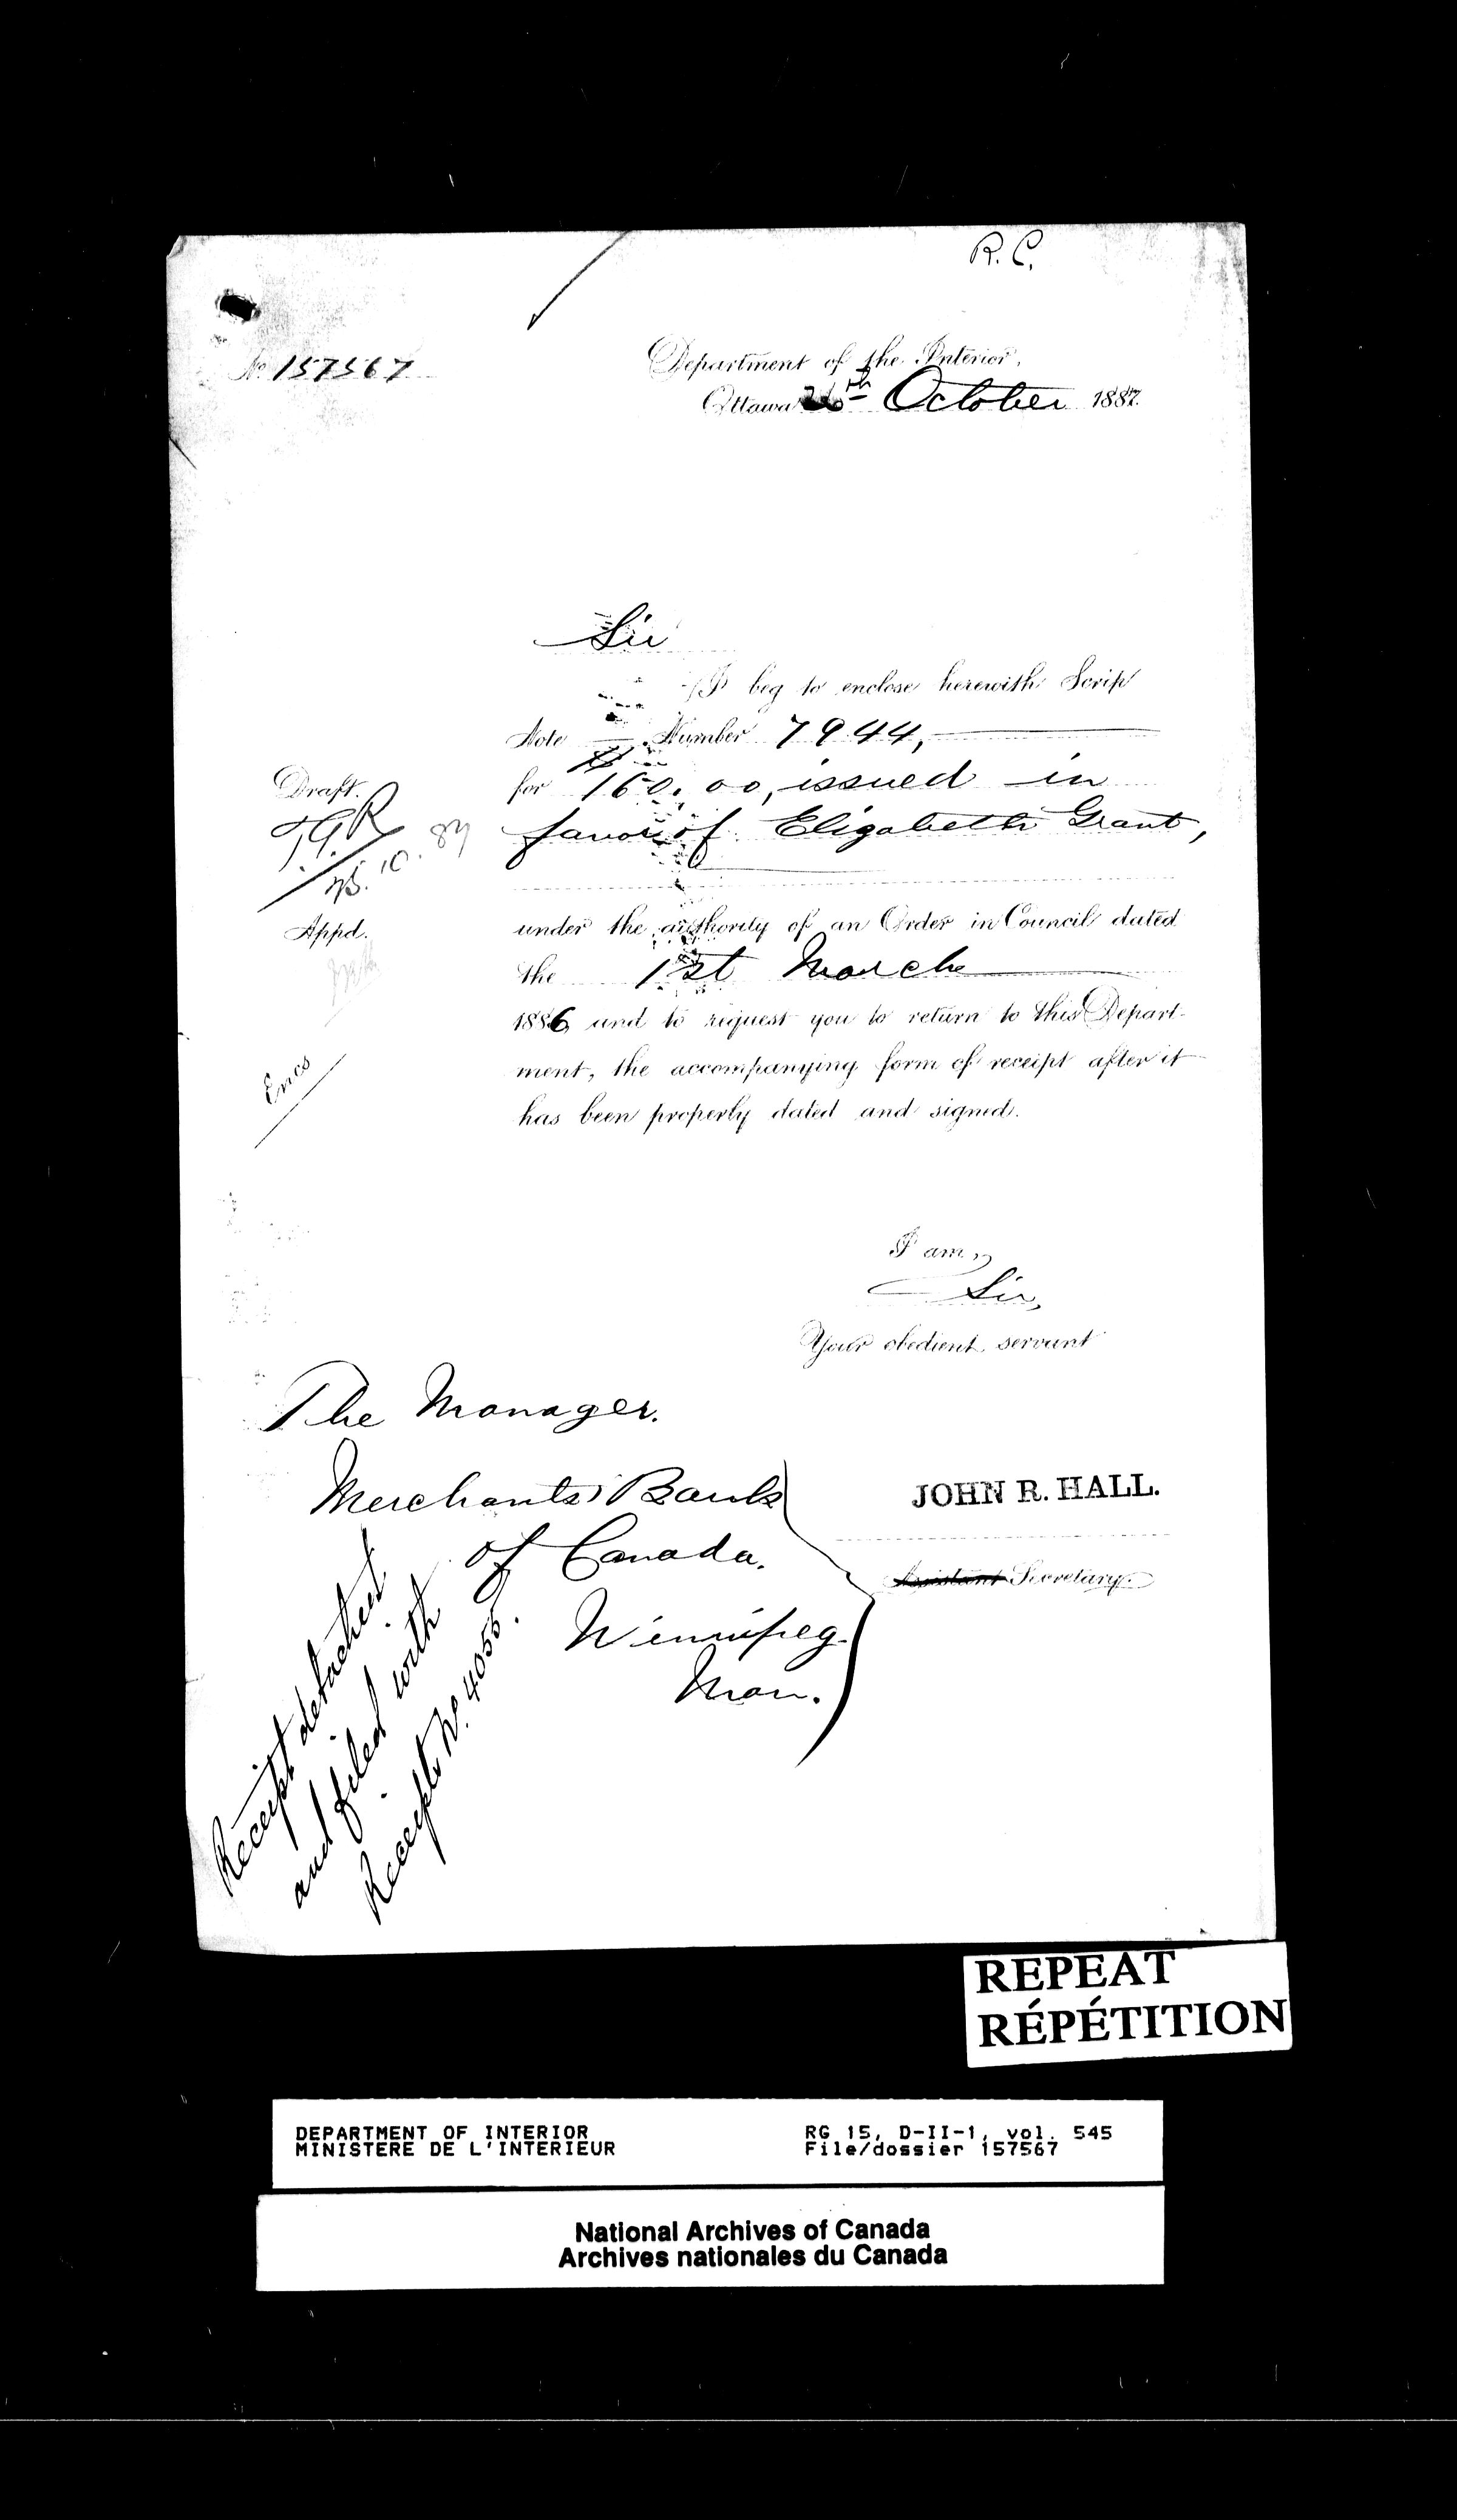 R. C.
No. 157567
Department of the Interior,
Ottawa 26th October 1887.
Sir
I beg to enclose herewith Scrip
Note Number 7944,
for $160.00, issued in
favor of Elizabeth Grant,
under the authority of an Order in Council dated
the 1st March
1886, and to request you to return to this Depart-
ment, the accompanying form of receipt after it
has been properly dated and signed.
Draft.
10. 87
Appd.
Encs
I am,
Sir,
Your obedient servant
The Manager.
Merchants Bank
of Canada.
Winnipeg.
Man.
JOHN R. HALL.
Assistant Secretary.
Receipt detached
and filed with
Receipts No. 4055.
REPEAT
RÉPÉTITION
DEPARTMENT OF INTERIOR
MINISTERE DE L'INTERIEUR
RG 15, D-II-1, vol. 545
File/dossier 157567
National Archives of Canada
Archives nationales du Canada